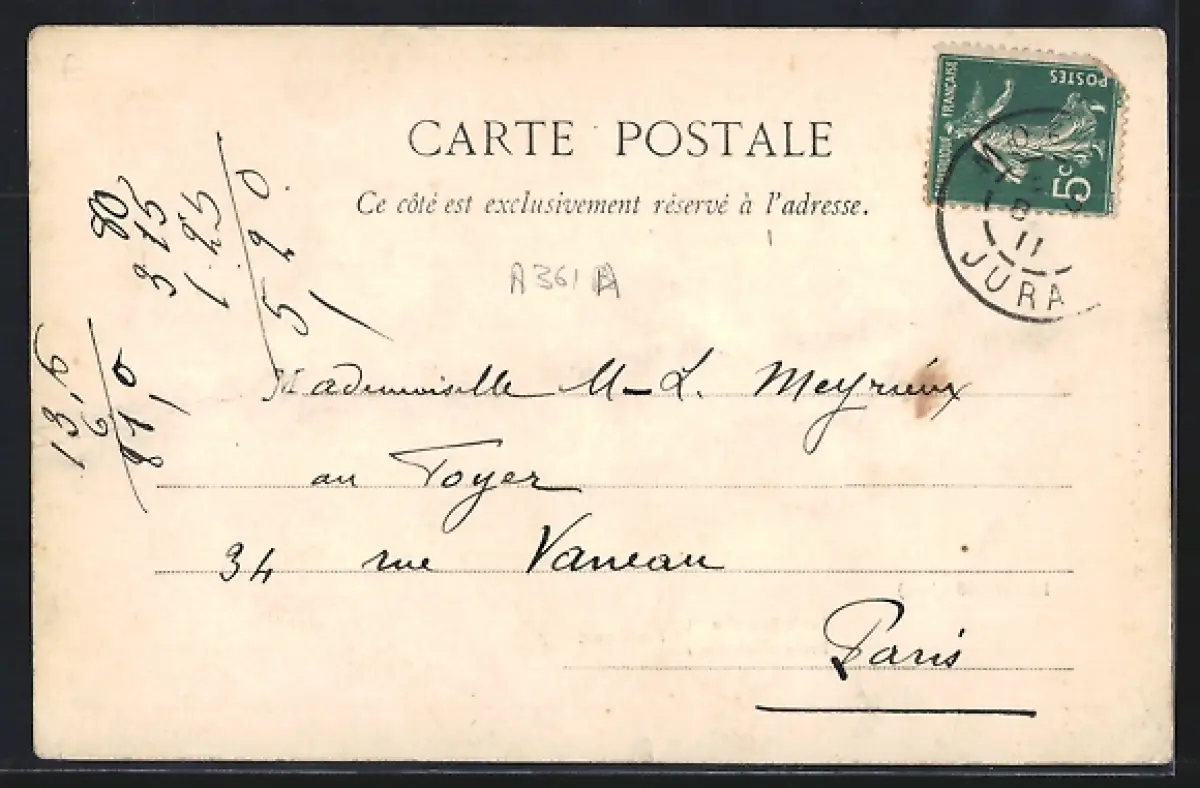 POSTES
RÉPUBLIQUE FRANÇAISE
5c
CARTE POSTALE
Ce côté est exclusivement réservé à l'adresse.
8
11
JURA
80
3 15
1.25
5 20
A 361 A
13,6
6
Mademoiselle M-L. Meyrieux
au Foyer
34 rue Vaneau
Paris